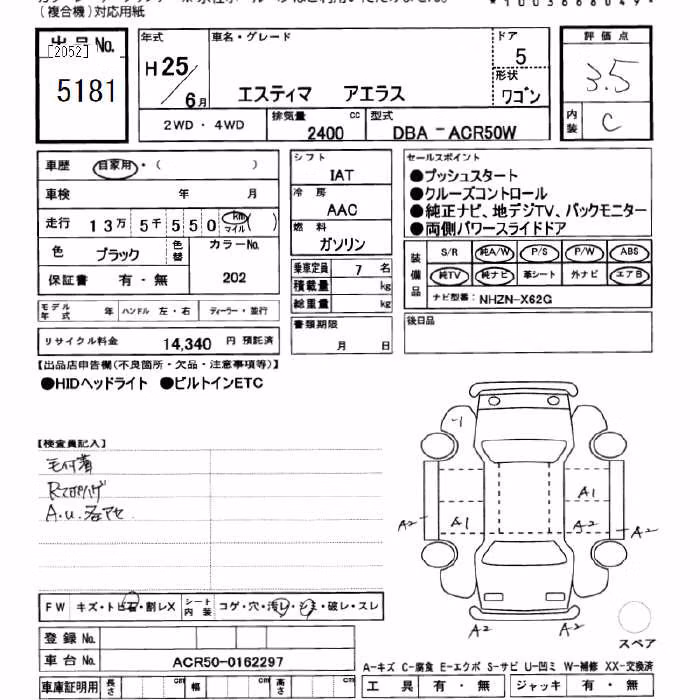 (複合機)対応用紙
出品No.
[2052]
5181
年式
H25/6月
車名・グレード
エスティマ アエラス
ドア
5
形状
ワゴン
評価点
3.5
内装
C
2WD・4WD
排気量
2400 cc
型式
DBA-ACR50W
車歴 自家用・( )
車検 年 月
走行 13万5千550 km マイル ( )
色 ブラック 色替
カラーNo.
202
保証書 有・無
シフト
IAT
冷房
AAC
燃料
ガソリン
乗車定員 7 名
積載量 kg
総重量 kg
セールスポイント
●プッシュスタート
●クルーズコントロール
●純正ナビ、地デジTV、バックモニター
●両側パワースライドドア
装備品
S/R 純A/W P/S P/W ABS
純TV 純ナビ 革シート 外ナビ エアB
ナビ型番: NHZN-X62G
モデル年式 年 ハンドル 左・右 ディーラー・並行
リサイクル料金 14,340 円 預託済
書類期限
月 日
後日品
【出品店申告欄(不良箇所・欠品・注意事項等)】
●HIDヘッドライト ●ビルトインETC
【検査員記入】
A1
A2
A1
A2
A2
A2
A2
A2
FW キズ・トビ石・割レX シート内装 コゲ・穴・汚レ・シミ・破レ・スレ
スペア
登録No.
車台No. ACR50-0162297
A-キズ C-腐食 E-エクボ S-サビ U-凹ミ W-補修 XX-交換済
車庫証明用 長さ cm 幅 cm 高さ cm
工具 有・無 ジャッキ 有・無